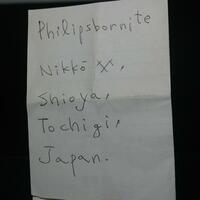 Philipsbornite
Nikkō ⛏,
Shioya,
Tochigi,
Japan.